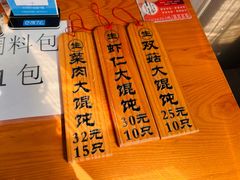 调料包
1包
生
菜肉大馄饨
32元
15只
生
虾仁大馄饨
30元
10只
生
双菇大馄饨
25元
10只